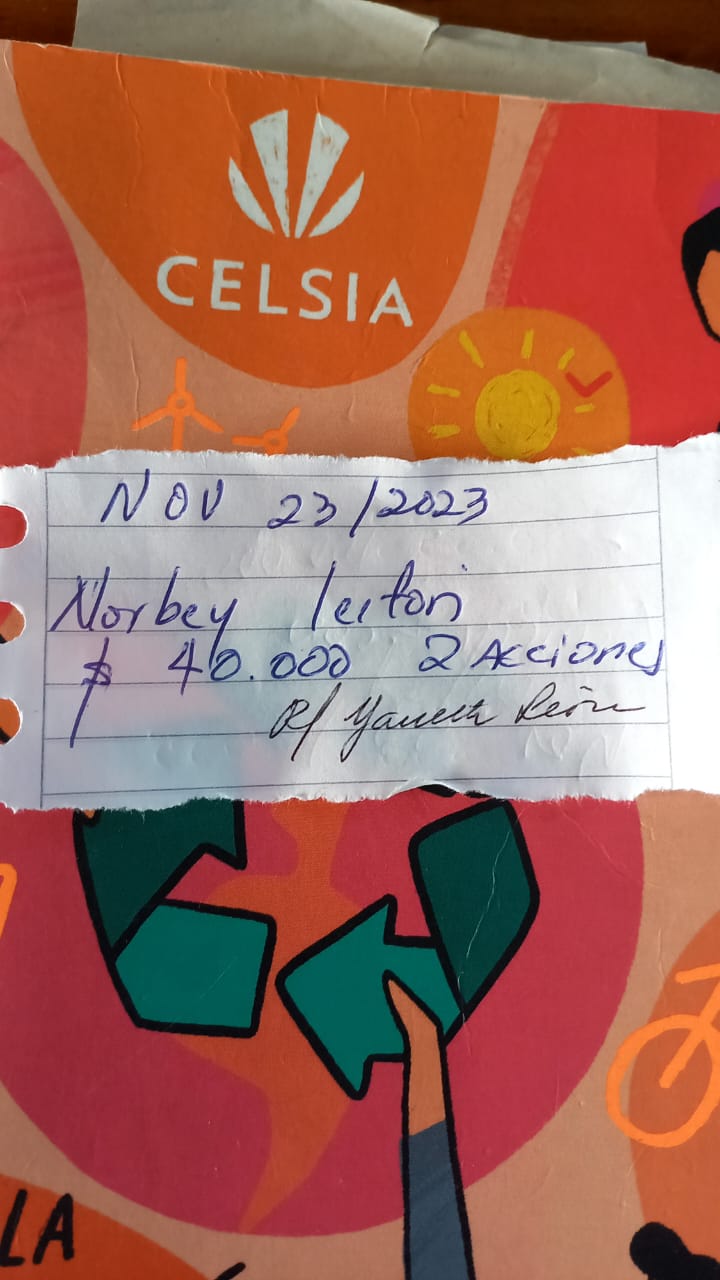 CELSIA
NOV 23/2023
Norbey leiton
$ 40.000 2 Acciones
R/ Yaneth León
LA